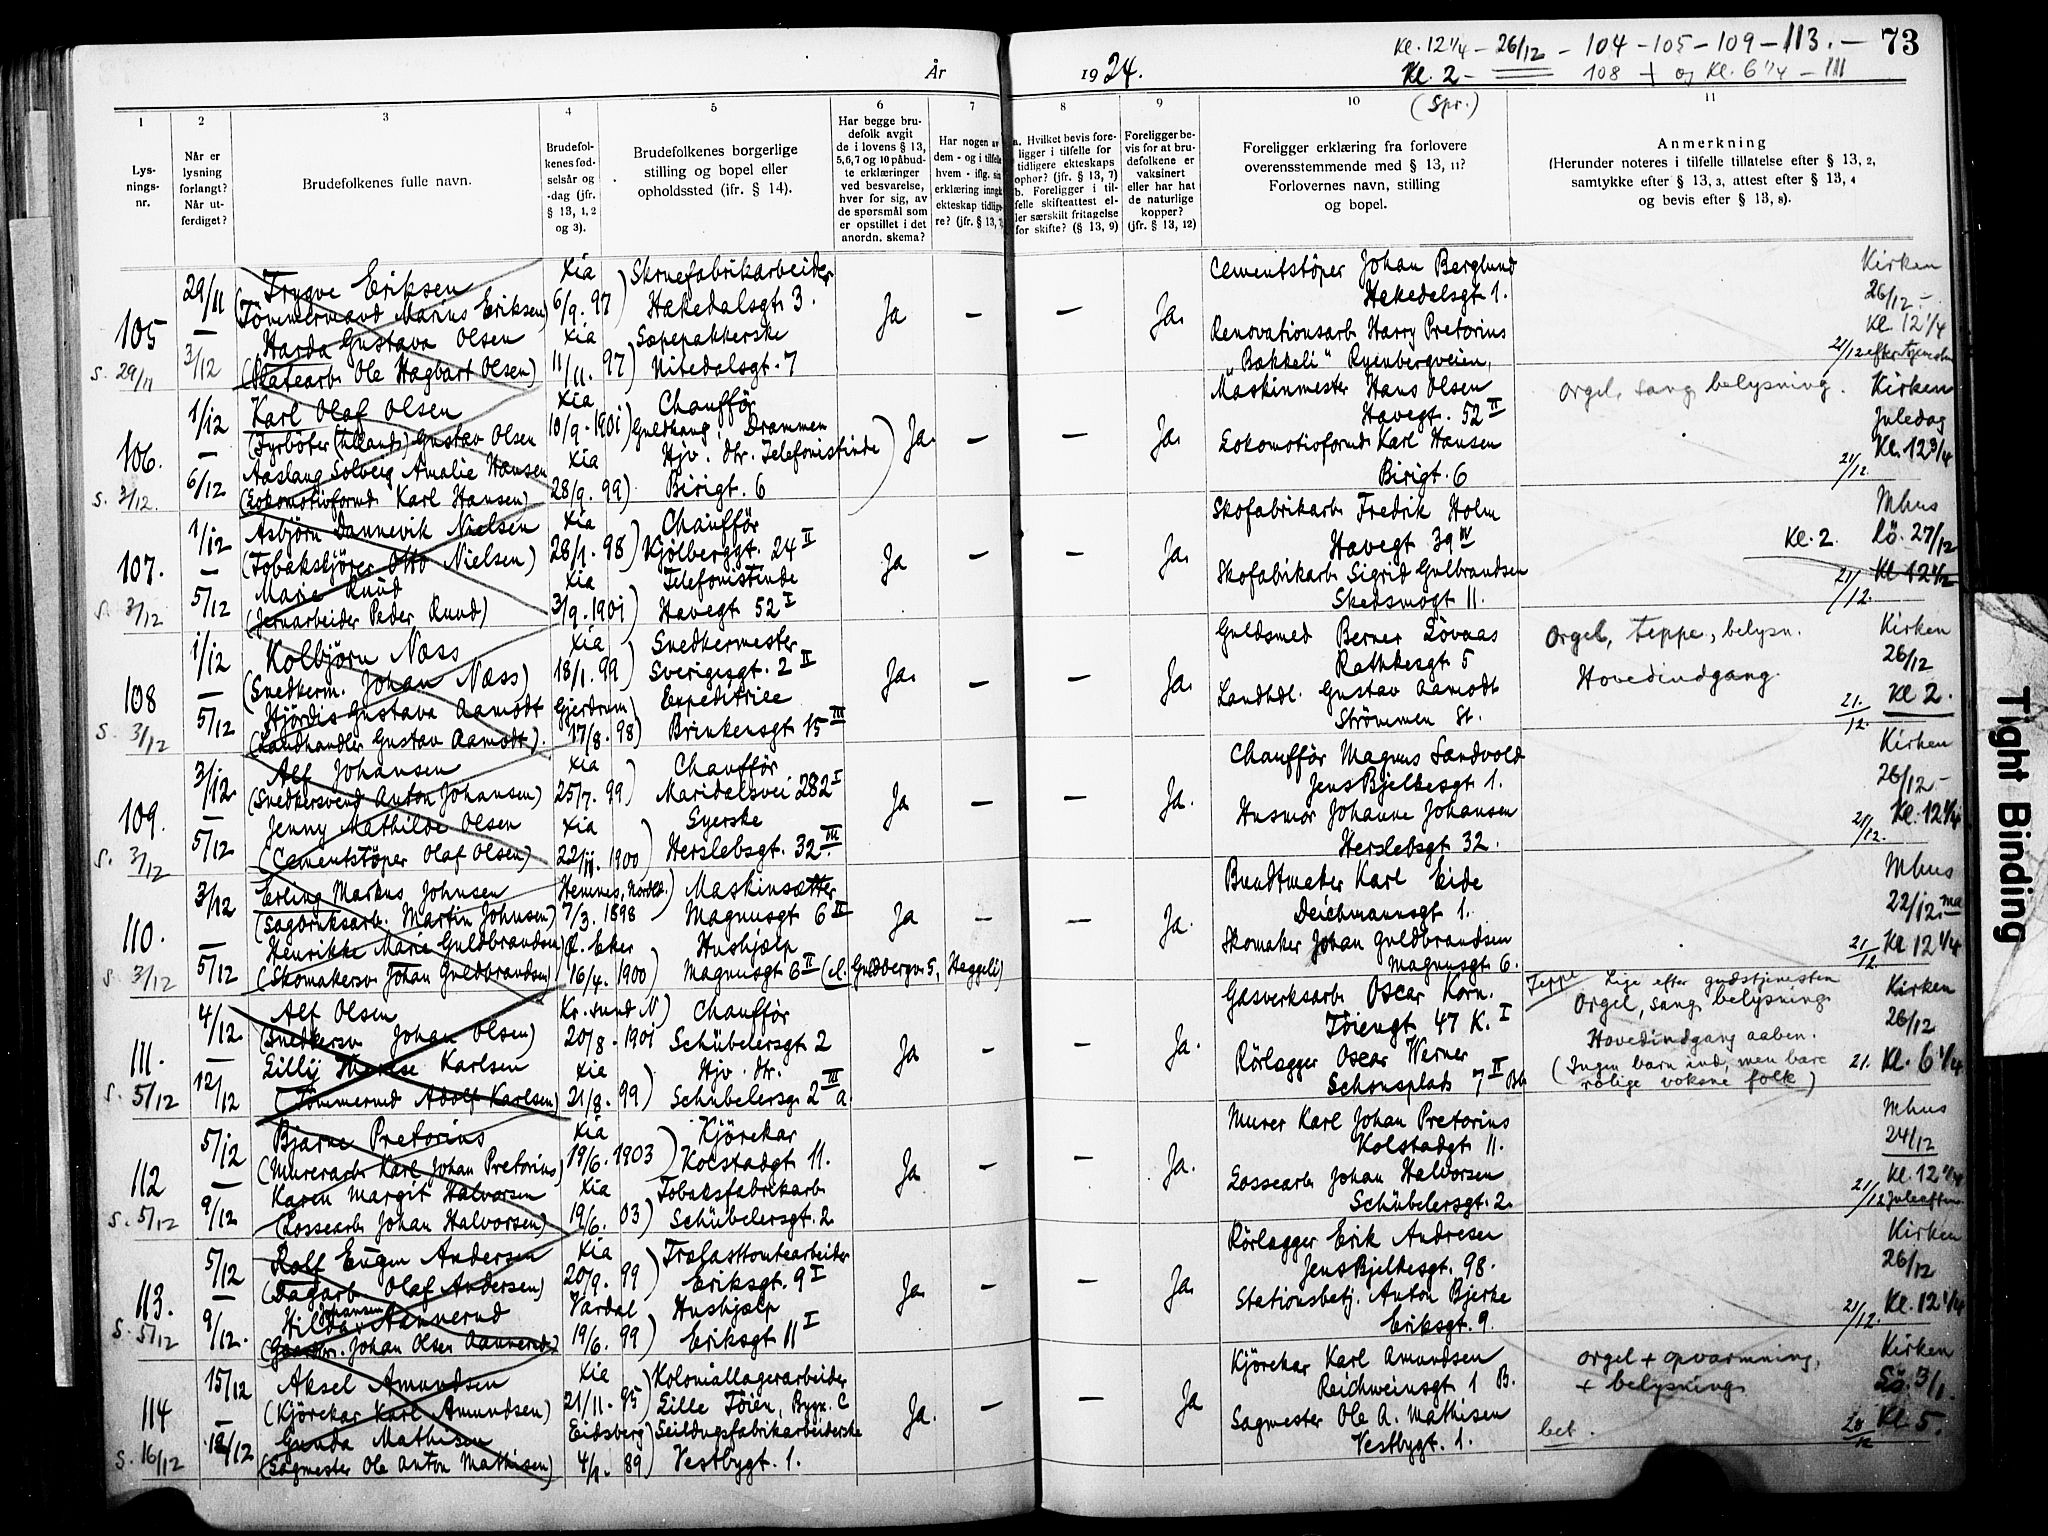 År 1924.
Kl. 12¼ – 26/12 – 104 – 105 – 109 – 113. – 73
Kl. 2 – 108 + og Kl. 6¼ – 111
(Spr.)
1
2
3
4
5
6
7
8
9
10
11
Lys-
nings-
nr.
Når er
lysning
forlangt?
Når ut-
ferdiget?
Brudefolkenes fulle navn.
Brudefol-
kenes fød-
selsår og
-dag (jfr.
§ 13, 1, 2
og 3).
Brudefolkenes borgerlige
stilling og bopel eller
opholdssted (jfr. § 14).
Har begge bru-
defolk avgit
de i lovens § 13,
5,6,7 og 10 påbud-
te erklæringer
ved besvarelse,
hver for sig, av
de spørsmål som
er opstillet i det
anordn. skema?
Har nogen av
dem - og i tilfelle
hvem - iflg. sin
erklæring inngå
ekteskap tidlig-
re? (jfr. § 13,
a. Hvilket bevis fore-
ligger i tilfelle for
tidligere ekteskaps
ophør? (jfr. § 13, 7)
b. Foreligger i til-
felle skifteattest el-
ler særskilt fritagelse
for skifte? (§ 13, 9)
Foreligger be-
vis for at bru-
defolkene er
vaksinert
eller har hat
de naturlige
kopper?
(jfr. § 13, 12)
Foreligger erklæring fra forlovere
overensstemmende med § 13, 11?
Forlovernes navn, stilling
og bopel.
Anmerkning
(Herunder noteres i tilfelle tillatelse efter § 13, 2,
samtykke efter § 13, 3, attest efter § 13, 4
og bevis efter § 13, 8).
105
s. 29/11
29/11
—
3/12
Trygve Eriksen
(Tömmermand Marius Eriksen)
Harda Gustava Olsen
(Platearb. Ole Hagbart Olsen)
Xia
6/9. 97)
Xia
11/11. 97)
Skruefabrikarbeider
Hakedalsgt. 3.
Sæpepakkerske
Nitedalsgt. 7
Ja
—
—
Ja.
Cementstöper Johan Berglund
Hakedalsgt 1.
Renovationsarb. Harry Pretorius
"Bakkeli" Ryenbergveien,
Kirken
26/12 –
Kl. 12¼
21/12 efter tjenesten
106.
s. 3/12.
1/12
—
6/12
Karl Olaf Olsen
(Fyrböter (utlands) Gustav Olsen
Aaslaug Solveig Amalie Hansen
(Lokomotivformd. Karl Hansen)
Xia
10/9. 1901)
Xia
28/9. 99)
Chaufför
Guldhaug Drammen
Hjv. dtr. Telefonistinde
Birigt. 6
Ja.
—
—
Ja.
Maskinmester Hans Olsen
Havegt. 52 II
Lokomotivformd. Karl Hansen
Birigt. 6
Orgel, sang, belysning.
Kirken
Juledag
Kl. 12¾
21/12.
107.
s. 3/12
1/12
—
5/12
Asbjörn Dannevik Nielsen
(Tobakskjörer Otto Nielsen)
Marie Ruud
(Jernarbeider Peder Ruud)
Xia
28/1. 98)
Xia
3/9. 1901)
Chaufför
Kjölberggt. 24 II
Telefonistinde
Havegt 52 I
Ja
—
—
Ja.
Skofabrikarb. Fredrik Holm
Havegt 39 IV
Skofabrikarb. Sigrid Gulbrandsen
Skedsmogt 11.
Mhus
Kl. 2. Lö. 27/12
Kl 12½
21/12.
108
s. 3/12
1/12
—
5/12
Kolbjörn Næss
(Snedkerm. Johan Næss)
Hjördis Gustava Aamodt
(Landhandler Gustav Aamodt)
Xia
18/1. 99)
Gjerdrum
17/8. 98)
Snedkermester
Sverigesgt. 2 II
Expeditrice
Brinkensgt 15 III
Ja.
—
—
Ja.
Guldsmed Berner Lövaas
Rathkesgt. 5
Landhdl. Gustav Aamodt
Strömmen St.
Orgel, teppe, belysn.
Hovedindgang.
Kirken
26/12
Kl 2.
21./12
109.
s. 3/12
3/12
—
5/12
Alf Johansen
(Snedkersvend Anton Johansen)
Jenny Mathilde Olsen
(Cementstöper Olaf Olsen)
Xia
25/7. 99)
Xia
22/11. 1900)
Chaufför
Maridalsvei 282 I
Syerske
Herslebsgt. 32 III
Ja
—
—
Ja.
Chaufför Magnus Sandvold
Jens Bjelkesgt. 1.
Husmor Johanne Johansen
Herslebsgt 32.
Kirken
26/12 –
Kl. 12¼
21/12.
110.
s. 3/12
3/12
—
5/12
Erling Markus Johnsen
(Sagbruksarb. Martin Johnsen)
Henrikke Marie Guldbrandsen
(Skomakersv. Johan Guldbrandsen)
Hemnes, Nordld.)
7/3. 1898
Ø. Eker
16/4. 1900)
Maskinsætter
Magnusgt 6 II
Hushjælp
Magnusgt 6 II (el. Guldbergv. 5, Heggeli)
Ja
—
—
Ja.
Buntmaker Karl Eide
Deichmannsgt 1.
Skomaker Johan Guldbrandsen
Magnusgt 6.
Mhus
22/12. ma
Kl 12¼
21/12
111.
s. 5/12
4/12
—
12/12
Alf Olsen
(Snedkersv. Johan Olsen)
Lilly Therese Karlsen
(Tömmermd Adolf Karlsen)
Kr. sund N)
20/8. 1901
Xia
21/8. 99)
Chaufför
Schübelersgt 2
Hjv. dtr.
Schübelersg. 2 III a
Ja
—
—
Ja.
Gasverksarb. Oscar Korn.
Töiengt. 47 K. I
Rörlægger Oscar Werner
Schousplads 7 II Bb
Teppe
Lige efter gudstjenesten
Orgel, sang, belysning
Hovedindgang aaben.
(Ingen barn ind, men bare
rolige voksne folk)
Kirken
26/12
21. Kl. 6¼
112
s. 5/12
5/12
—
9/12
Bjarne Pretorius
(Murerarb. Karl Johan Pretorius)
Karen Margit Halvorsen
(Lossearb. Johan Halvorsen)
Xia
19/6. 1903)
Xia
19/6. 03)
Kjörekar
Kolstadgt 11.
Tobaksfabrikarb.
Schübelersgt. 2
Ja
—
—
Ja.
Murer Karl Johan Pretorius
Kolstadgt 11.
Lossearb. Johan Halvorsen
Schübelersgt. 2.
Mhus
24/12
Kl. 12¼
21/12 Juleaften
113.
s. 5/12
5/12
—
9/12.
Rolf Eugen Andersen
(Dagarb. Olaf Andersen)
Johansen
Hilda Aannerud
(Gaardbr. Johan Olsen Aannerud)
Xia
20/9. 99)
Vardal
19/6. 99)
Trælasttomtearbeider
Eriksgt. 9 I
Hushjælp
Eriksgt 11 I
Ja.
—
—
Ja.
Rörlægger Erik Andresen
Jens Bjelkesgt. 98.
Stationsbetj. Anton Bjerke
Eriksgt. 9.
Kirken
26/12
Kl. 12¼
21/12.
114
s. 16/12
15/12
—
18/12
Aksel Amundsen
(Kjörekar Karl Amundsen)
Gunda Mathisen
(Sagmester Ole Anton Mathisen)
Xia
21/11. 95)
Eidsberg
4/1. 89)
Koloniallagerarbeider
Lille Töien, Bygn. C
Seildugsfabrikarbeiderske
Vestbygt. 1.
Ja.
—
—
Ja
Kjörekar Karl Amundsen
Reichweinsgt 1 B.
Sagmester Ole A. Mathisen
Vestbygt. 1.
orgel + opvarmning,
+ belysning
bet.
Kirken
Lö. 3/1.
28/12 Kl. 5.
Tight Binding